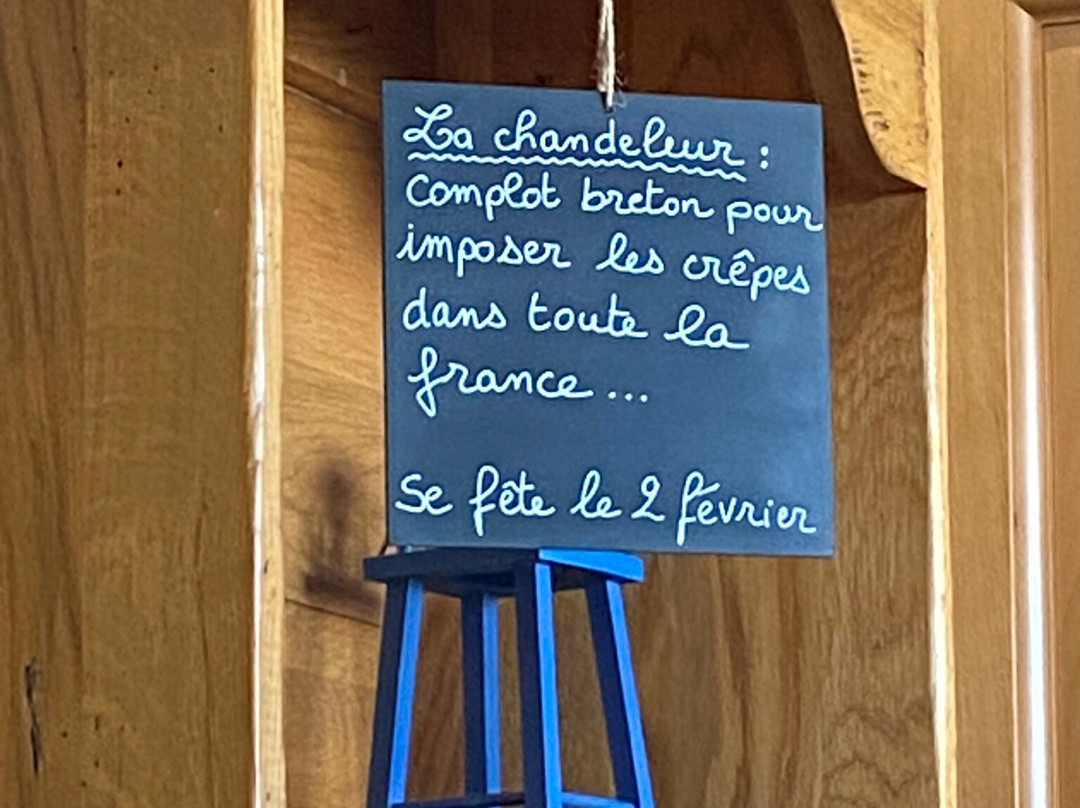 La chandeleur :
Complot breton pour
imposer les crêpes
dans toute la
france...
Se fête le 2 février